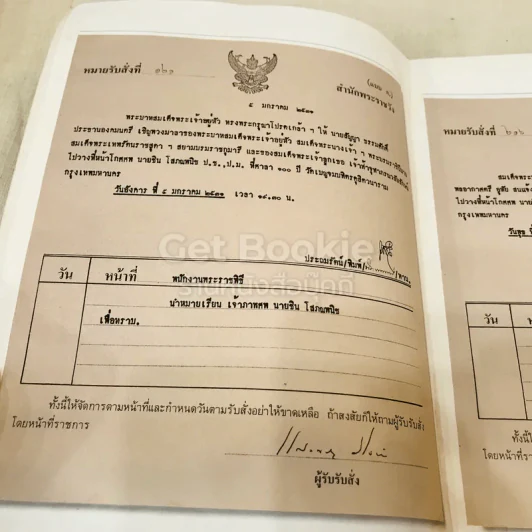 หมายรับสั่งที่ ๑๒๑
(ตอน ๔)
สำนักพระราชวัง
๕ มกราคม ๒๕๓๑
พระบาทสมเด็จพระเจ้าอยู่หัว ทรงพระกรุณาโปรดเกล้า ฯ ให้ นายสัญญา ธรรมศักดิ์
ประธานองคมนตรี เชิญพวงมาลาของพระบาทสมเด็จพระเจ้าอยู่หัว สมเด็จพระนางเจ้า ฯ พระบรมราชินีนาถ
สมเด็จพระเทพรัตนราชสุดา ฯ สยามบรมราชกุมารี และของสมเด็จพระเจ้าลูกเธอ เจ้าฟ้าจุฬาภรณวลัยลักษณ์
ไปวางที่หน้าโกศศพ นายชิน โสภณพนิช ป.ช.,ป.ม. ที่ศาลา ๑๐๐ ปี วัดเบญจมบพิตรดุสิตวนาราม
กรุงเทพมหานคร
วันอังคาร ที่ ๕ มกราคม ๒๕๓๑ เวลา ๑๙.๓๐ น.
ประถมรัตน์/พิมพ์/
/ทาน.
วัน หน้าที่ พนักงานพระราชพิธี
นำหมายเรียน เจ้าภาพศพ นายชิน โสภณพนิช
เพื่อทราบ.
ทั้งนี้ให้จัดการตามหน้าที่และกำหนดวันตามรับสั่งอย่าให้ขาดเหลือ ถ้าสงสัยก็ให้ถามผู้รับรับสั่ง
โดยหน้าที่ราชการ
ผู้รับรับสั่ง
Get Bookie
ร้านหนังสือมุ๊กกี้
หมายรับสั่งที่
สมเด็จพระ
กรุงเทพมหานคร
วัน
ทั้งนี้
โดยหน้าที่รา